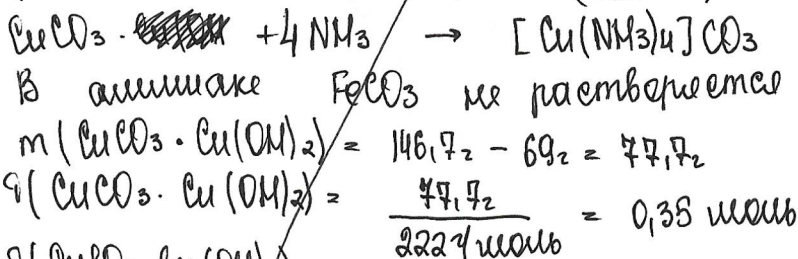 CuCO3 · +4 NH3 → [Cu(NH3)4]CO3
В аммиаке FeCO3 не растворяется
m(CuCO3 · Cu(OH)2) = 146,7г - 69г = 77,7г
ϑ(CuCO3 · Cu(OH)2) = 77,7г / 222г/моль = 0,35 моль